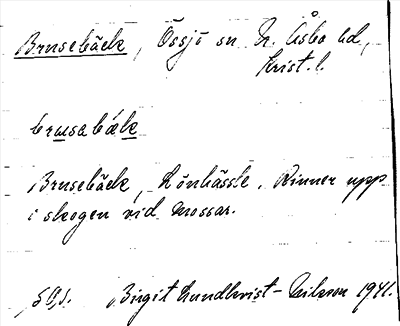 Brusebäck, Össjö sn N. Åsbo hd,
Krist. l.
brusabäk
Brusebäck, Lönhässle. Rinner upp
i skogen vid mossar.
Birgit Lundkvist-Nilsson 1941.